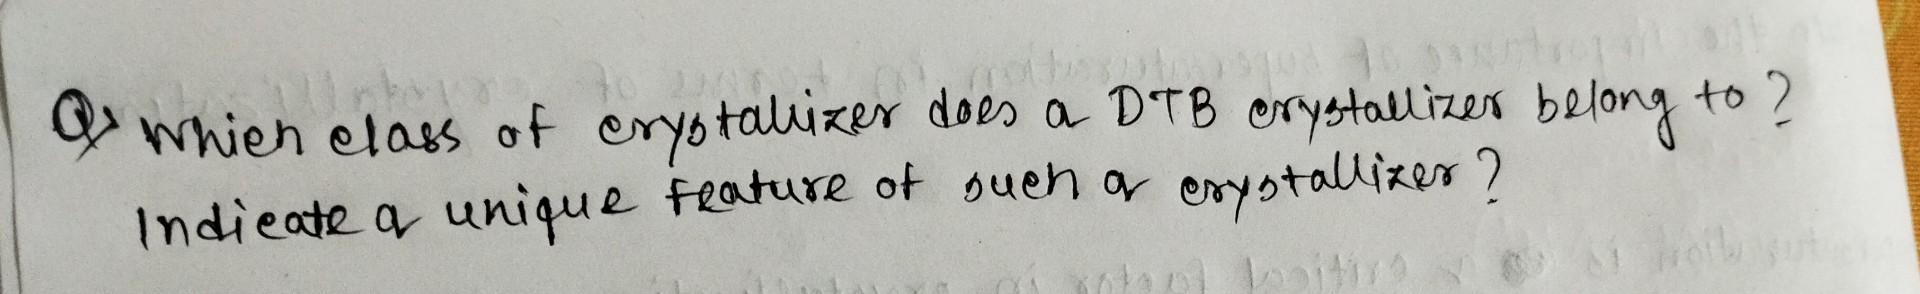 Q> Which class of crystallizer does a DTB crystallizer belong to?
Indicate a unique feature of such a crystallizer?